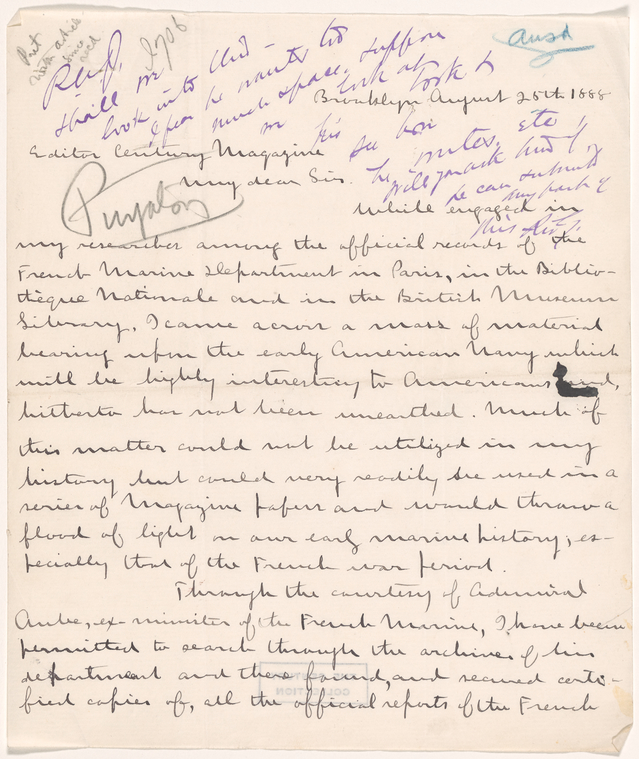 Put
with article
since
recd.
2706
Ansd
shall we
look into this -
I fear he wants too
much space. Suppose
we look at
his
Brooklyn August 25th 1888
Editor Century Magazine
My dear Sir.
Puryatory
While engaged in
my researches among the official records of the
French Marine Department in Paris, in the Biblio-
thèque Nationale and in the British Museum
Library, I came across a mass of material
bearing upon the early American Navy which
will be highly interesting to Americans and,
hitherto has not been unearthed. Much of
this matter could not be utilized in my
history but could very readily be used in a
series of Magazine papers and would throw a
flood of light on our early marine history, es-
pecially that of the French war period.
Through the courtesy of Admiral
Aube, ex-minister of the French Marine, I have been
permitted to search through the archives of his
department and there found, and secured certi-
fied copies of, all the official reports of the French
COLLECTION